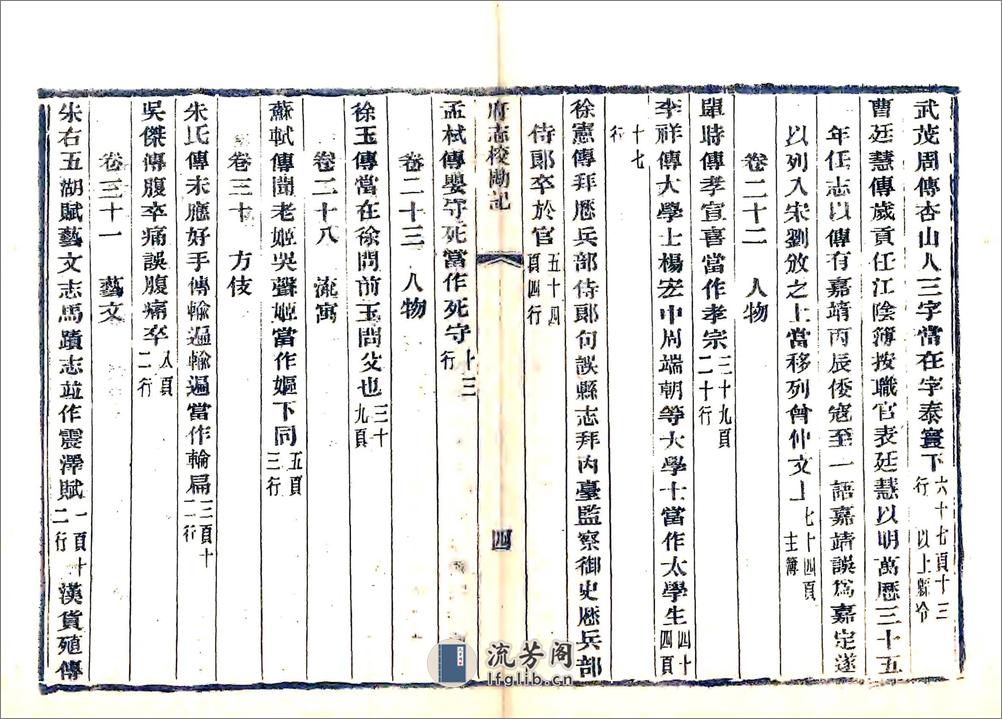 武茂周傳杏山人三字當在字泰寰下六十七頁十三行 以上縣令
曹廷慧傳歲貢任江陰簿按職官表廷慧以明萬曆三十五
年任志以傳有嘉靖丙辰倭寇至一語嘉靖誤爲嘉定遂
以列入宋劉攽之上當移列曾仲文上七十四頁主簿
卷二十二 人物
單時傳孝宣喜當作孝宗三十九頁二十行
李祥傳大學士楊宏中周端朝等大學士當作太學生四十四頁
十七行
徐憲傳拜歷兵部侍郎句誤縣志拜內臺監察御史歷兵部
侍郎卒於官五十四頁四行
府志校勘記
四
孟栻傳嬰守死當作死守十三行
卷二十三 人物
徐玉傳當在徐問前玉問父也三十九頁
卷二十八 流寓
蘇軾傳聞老姬哭聲姬當作嫗下同五頁三行
卷三十 方伎
朱氏傳未應好手傳輸遍輸遍當作輪扁三頁十二行
吳傑傳腹卒痛誤腹痛卒八頁二行
卷三十一 藝文
朱右五湖賦藝文志馬蹟志並作震澤賦一頁十二行 漢貨殖傳
流芳阁
lfglib.cn